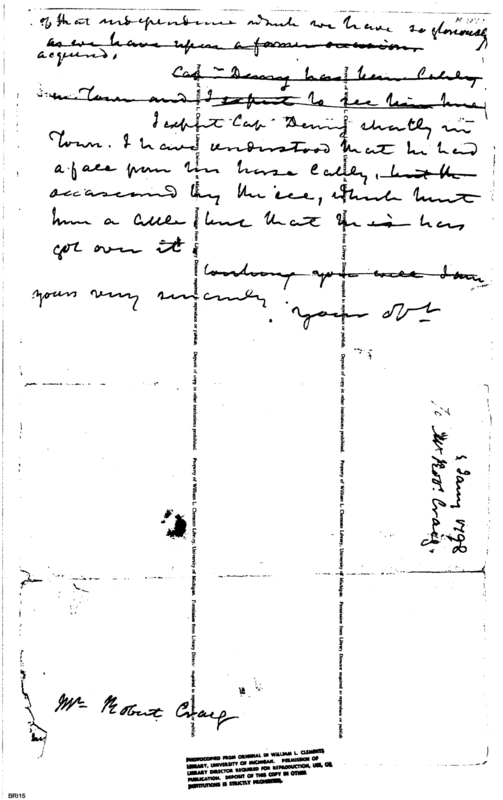 of that independence which we have so gloriously
as we have upon a former occasion
acquired.
Cap Denny has been lately
in Town and I expect to see him here
I expect Cap Denny shortly in
Town. I have understood that he had
a fall from his horse lately, but the
occasioned by the ice, which hurt
him a little but that he is has
got over it
you will I am
yours very sincerely
your obt
5 Jany 1798
To Mr Robt. Craig,
Mr Robert Craig
Property of William L. Clements Library, University of Michigan. Permission from Library Director required to reproduce or publish. Deposit of copy in other institutions prohibited.
Property of William L. Clements Library, University of Michigan. Permission from Library Director required to reproduce or publish. Deposit of copy in other institutions prohibited.
PHOTOCOPIED FROM ORIGINAL IN WILLIAM L. CLEMENTS
LIBRARY, UNIVERSITY OF MICHIGAN. PERMISSION OF
LIBRARY DIRECTOR REQUIRED FOR REPRODUCTION, USE, OR
PUBLICATION. DEPOSIT OF THIS COPY IN OTHER
INSTITUTIONS IS STRICTLY PROHIBITED.
BRI15